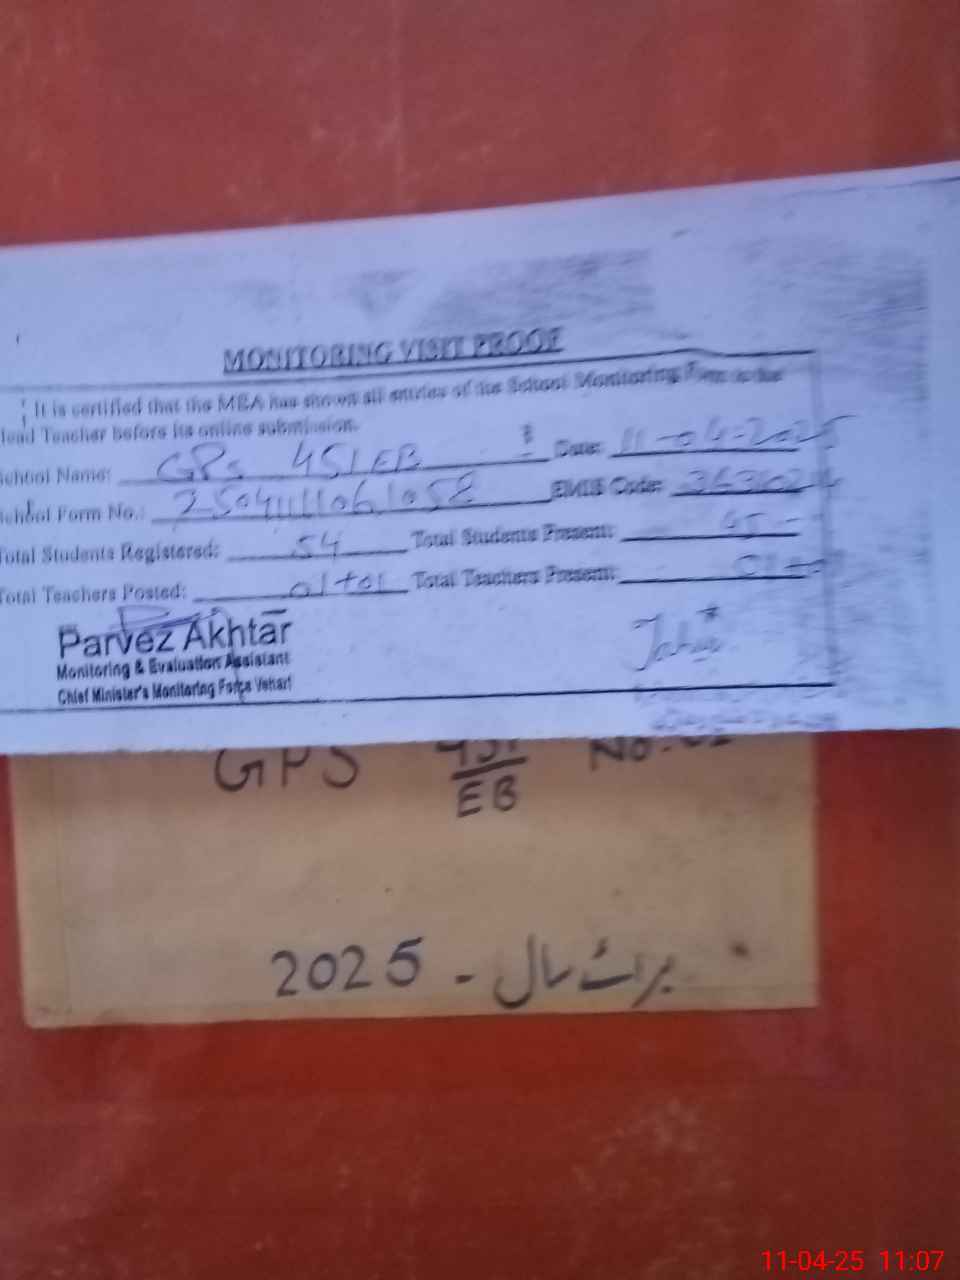 MONITORING VISIT PROOF
It is certified that the MEA has shown all entries of the School Monitoring Form to the
Head Teacher before its online submission.
School Name: GPS 451 EB Date: 11-04-2025
School Form No.: EMIS Code:
Total Students Registered: 54 Total Students Present: 45
Total Teachers Posted: 01+01 Total Teachers Present:
Parvez Akhtar
Monitoring & Evaluation Assistant
Chief Minister's Monitoring Force Vehari
GPS 451 No.
EB
برائے سال - 2025
11-04-25 11:07